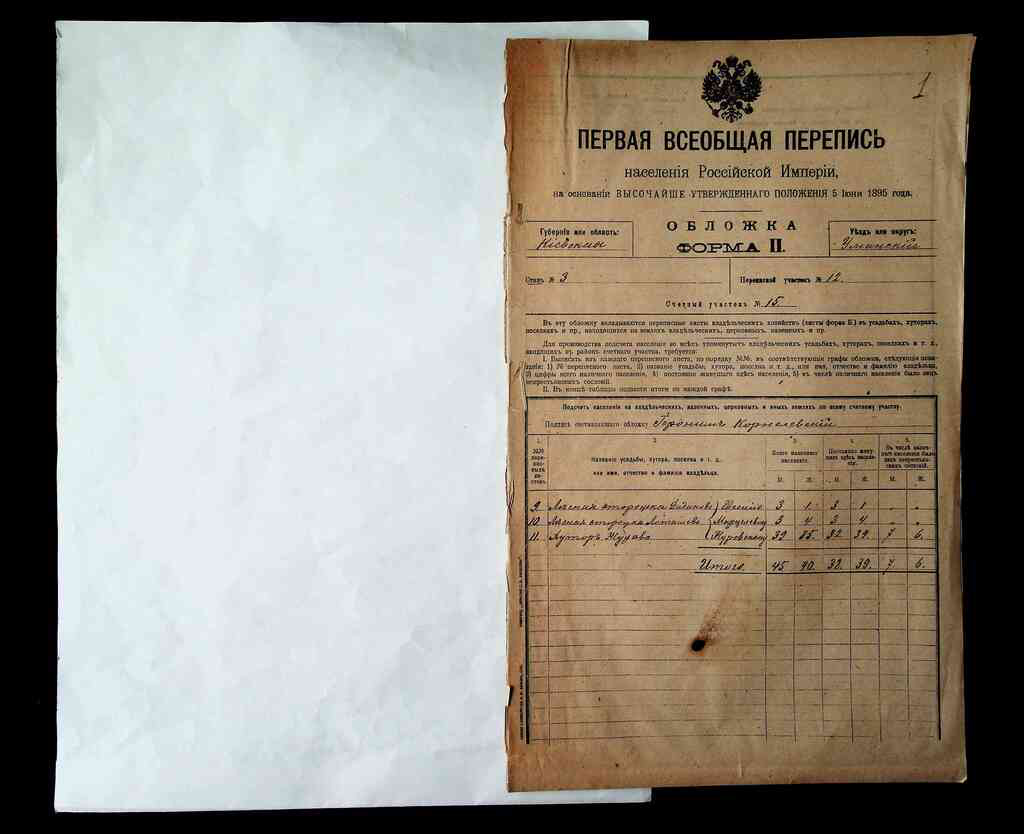 1
ПЕРВАЯ ВСЕОБЩАЯ ПЕРЕПИСЬ
населенія Россійской Имперіи,
на основаніи ВЫСОЧАЙШЕ УТВЕРЖДЕННАГО ПОЛОЖЕНІЯ 5 Іюня 1895 года.
ОБЛОЖКА
ФОРМА II.
Губернія или область:
Уѣздъ или округъ:
Уманскій
Станъ № 3
Переписной участокъ № 12.
Счетный участокъ № 15.
Въ эту обложку вкладываются переписные листы владѣльческихъ хозяйствъ (листы форма Б.) въ усадьбахъ, хуторахъ,
поселкахъ и пр., находящихся на земляхъ владѣльческихъ, церковныхъ, казенныхъ и пр.
Для производства подсчета населенія во всѣхъ упомянутыхъ владѣльческихъ усадьбахъ, хуторахъ, поселкахъ и т. д.,
входящихъ въ районъ счетнаго участка, требуется:
I. Выписать изъ каждаго переписного листа, по порядку №№, въ соответствующія графы обложки, слѣдующія
1) № переписного листа, 2) названіе усадьбы, хутора, поселка и т. д., или имя, отчество и фамилію владѣльца,
3) цифры всего наличнаго населенія, 4) постоянно живущаго здѣсь населенія, 5) въ числѣ наличнаго населенія было лицъ
некрестьянскихъ сословій.
II. Въ концѣ таблицы подвести итоги по каждой графѣ.
Подсчетъ населенія на владѣльческихъ, казенныхъ, церковныхъ и иныхъ земляхъ по всему счетному участку.
Подпись составлявшаго обложку
1. 2. 3. 4. 5.
№№ переписныхъ листовъ.
Названіе усадьбы, хутора, поселка и т. д.
или имя, отчество и фамилія владѣльца.
Всего наличнаго населенія.
Постоянно живущаго здѣсь населенія.
Въ числѣ наличнаго населенія было лицъ некрестьянскихъ сословій.
М. Ж. М. Ж. М. Ж.
9 Лѣсная сторожка 3 1 3 1 . .
10 Лѣсная сторожка 3 4 3 4 . .
11. Хуторъ 39 35. 32. 39. 7 6.
Итого. 45 40. 38. 39. 7 6.